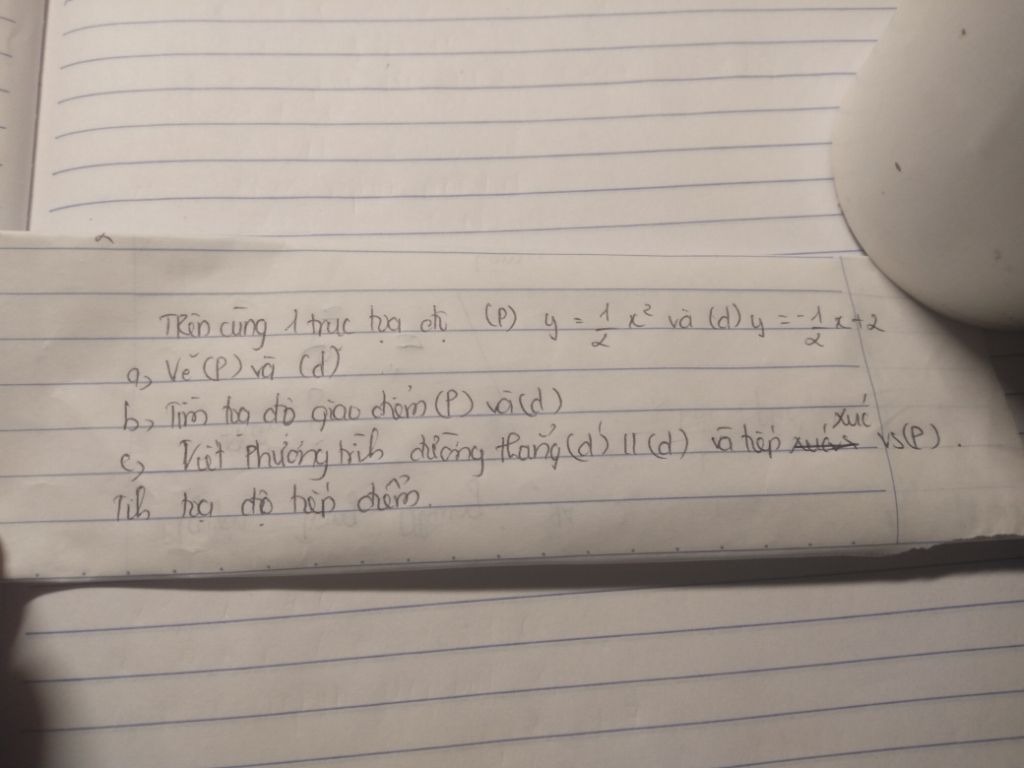 Trên cùng 1 trục tọa độ (P) y = 1/2 x² và (d) y = -1/2 x + 2
a, Vẽ (P) và (d)
b, Tìm tọa độ giao điểm (P) và (d)
c, Viết phương trình đường thẳng (d') // (d) và tiếp xúc vs (P).
Tính tọa độ tiếp điểm.